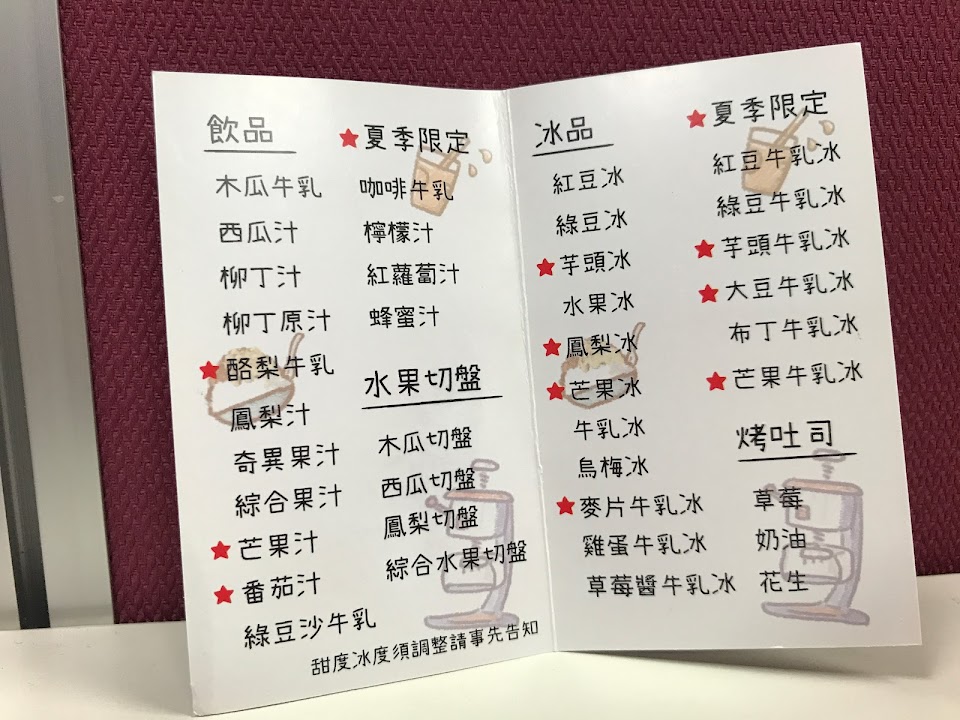 飲品
木瓜牛乳
西瓜汁
柳丁汁
柳丁原汁
★酪梨牛乳
鳳梨汁
奇異果汁
綜合果汁
★芒果汁
★番茄汁
綠豆沙牛乳
★夏季限定
咖啡牛乳
檸檬汁
紅蘿蔔汁
蜂蜜汁
水果切盤
木瓜切盤
西瓜切盤
鳳梨切盤
綜合水果切盤
甜度冰度須調整請事先告知
冰品
紅豆冰
綠豆冰
★芋頭冰
水果冰
★鳳梨冰
★芒果冰
牛乳冰
烏梅冰
★麥片牛乳冰
雞蛋牛乳冰
草莓醬牛乳冰
★夏季限定
紅豆牛乳冰
綠豆牛乳冰
★芋頭牛乳冰
★大豆牛乳冰
布丁牛乳冰
★芒果牛乳冰
烤吐司
草莓
奶油
花生